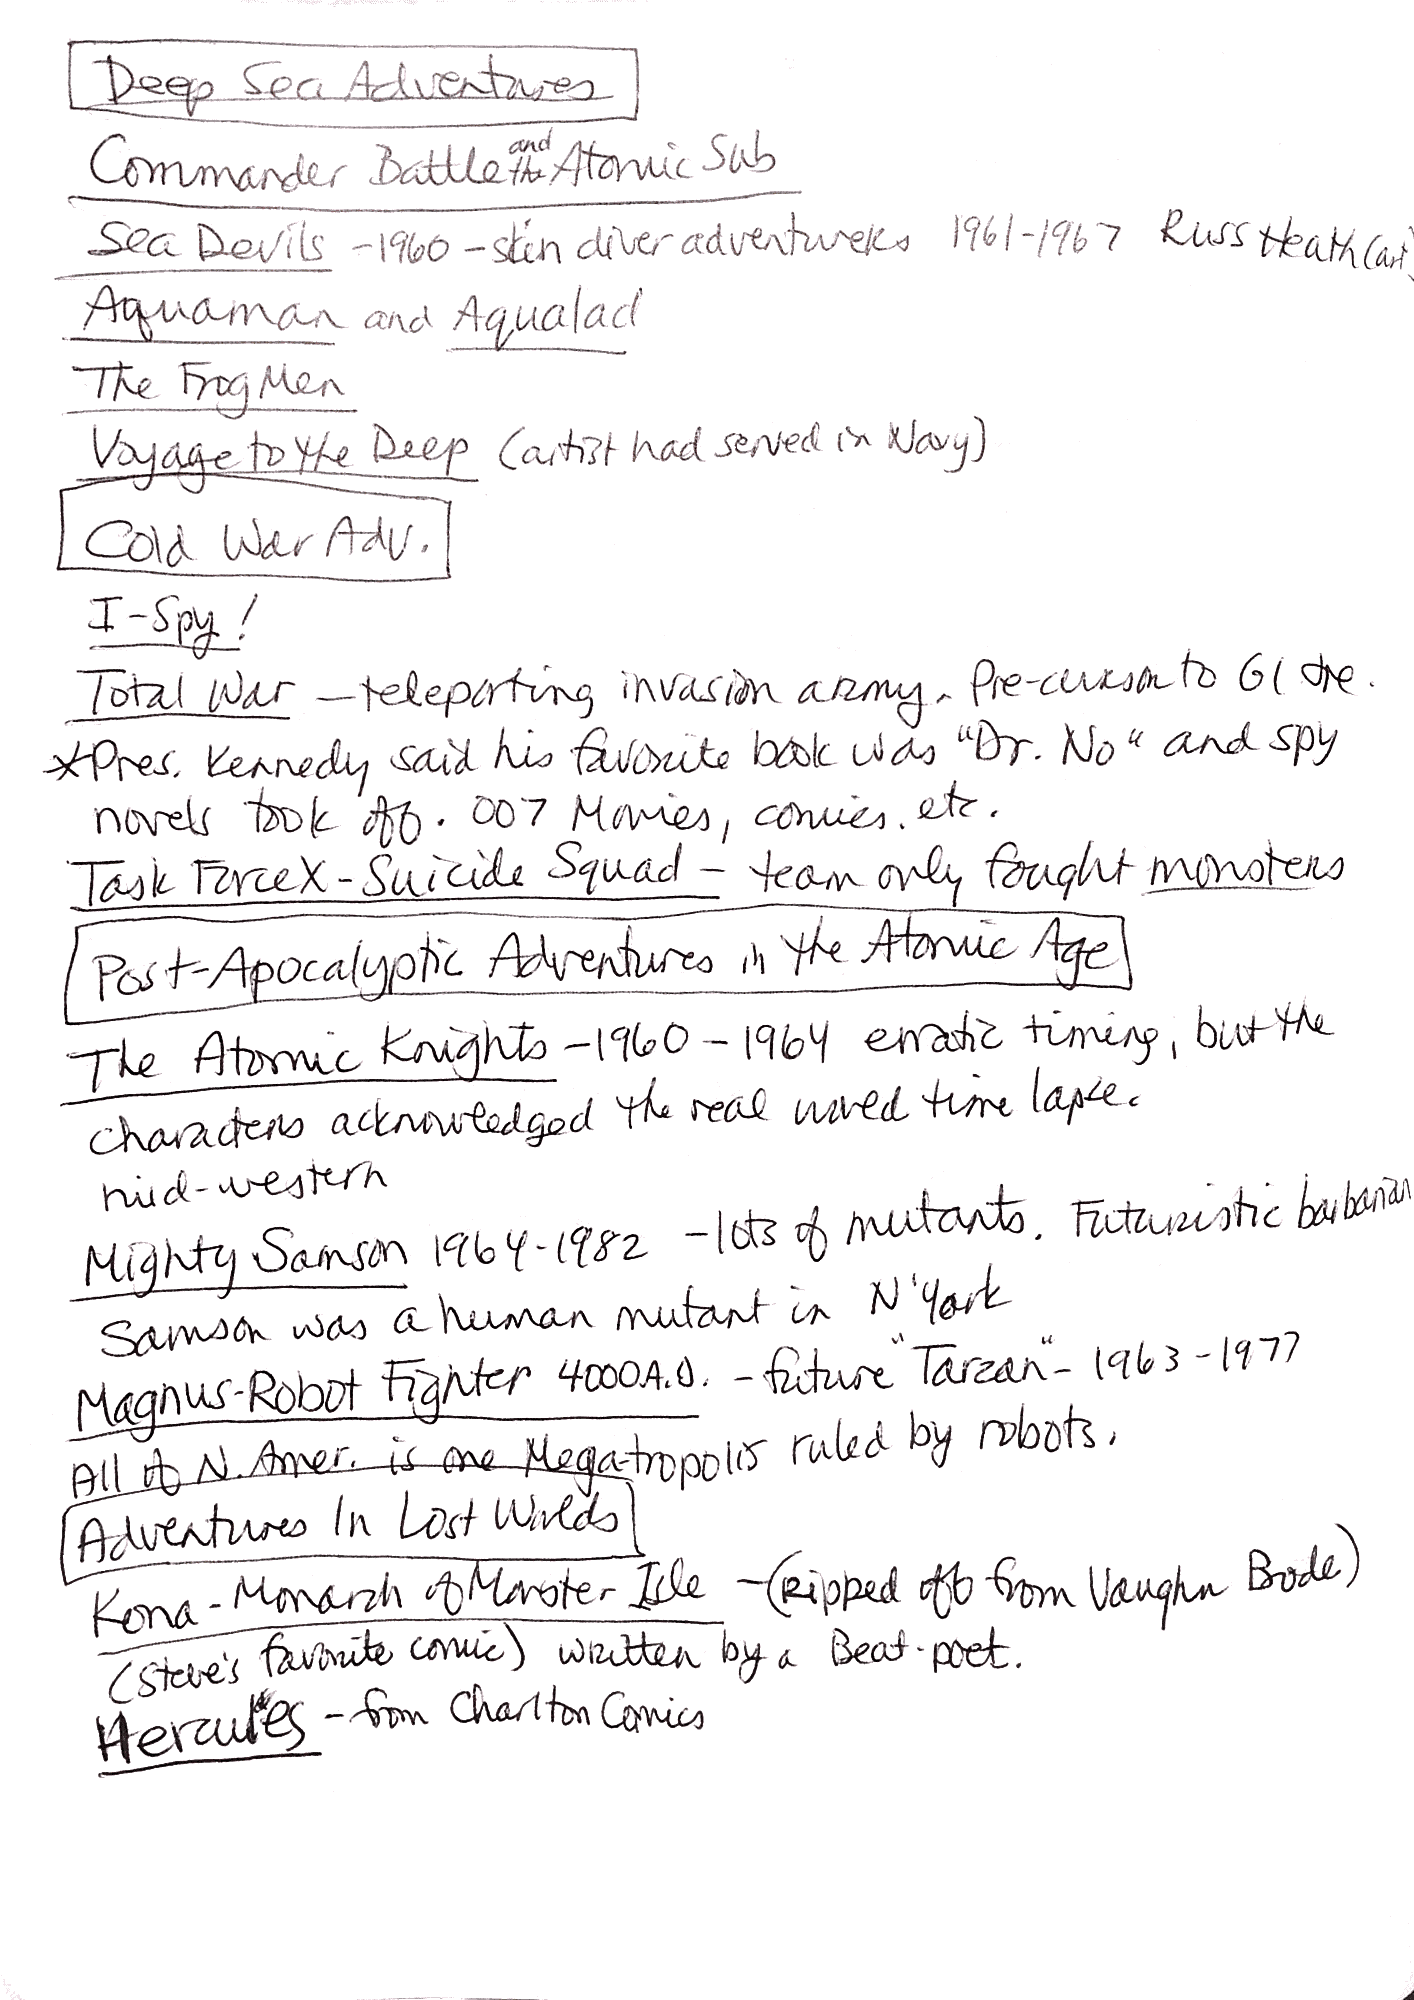 Deep Sea Adventures
Commander Battle and the Atomic Sub
Sea Devils - 1960 - skin diver adventurers 1961-1967 Russ Heath (art)
Aquaman and Aqualad
The Frog Men
Voyage to the Deep (artist had served in Navy)
Cold War Adv.
I-Spy!
Total War - teleporting invasion army. Pre-cursor to GI Joe.
*Pres. Kennedy said his favorite book was "Dr. No" and spy
novels took off. 007 Movies, comics. etc.
Task Force X - Suicide Squad - team only fought monsters
Post-Apocalyptic Adventures in the Atomic Age
The Atomic Knights - 1960 - 1964 erratic timing, but the
characters acknowledged the real world time lapse.
mid-western
Mighty Samson 1964-1982 - lots of mutants. Futuristic barbarian
Samson was a human mutant in N'York
Magnus-Robot Fighter 4000 A.D. - future "Tarzan" - 1963-1977
All of N. Amer. is one Mega-tropolis ruled by robots.
Adventures In Lost Worlds
Kona - Monarch of Monster Isle - (Ripped off from Vaughn Bode)
(Steve's favorite comic) written by a Beat-poet.
Hercules - from Charlton Comics